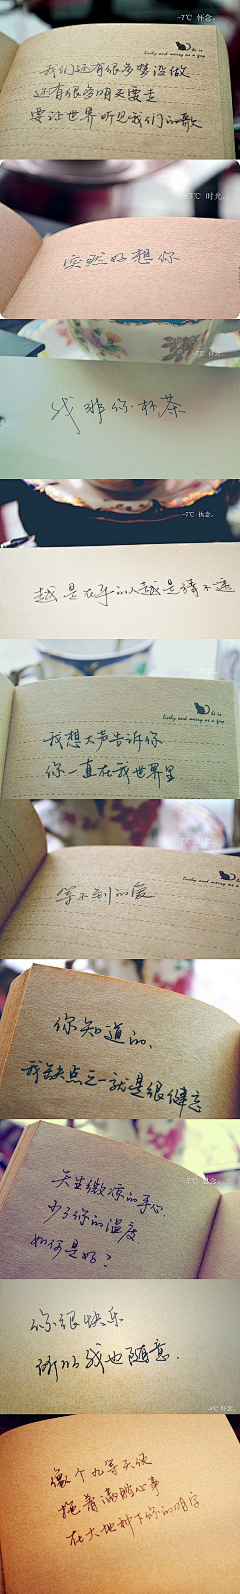 -7℃ 怀念。
he is
lively and merry as a grig
我们还有很多梦没做
还有很多明天要走
要让世界听见我们的歌
-7℃ 时光。
突然好想你
-7℃ 怀念。
找那你杯茶
-7℃ 执念。
越是在乎的人越是猜不透
he is
lively and merry as a grig
我想大声告诉你
你一直在我世界里
he is
lively and merry as a
等不到的爱
你知道的、
我缺点之一就是很健忘
-7℃ 思念。
天生微凉的手心
少了你的温度
如何是好？
你很快乐
所以我也随意.
-7℃ 怀念。
像个九等天使
拖着满腔心事
在大地种下你的名字